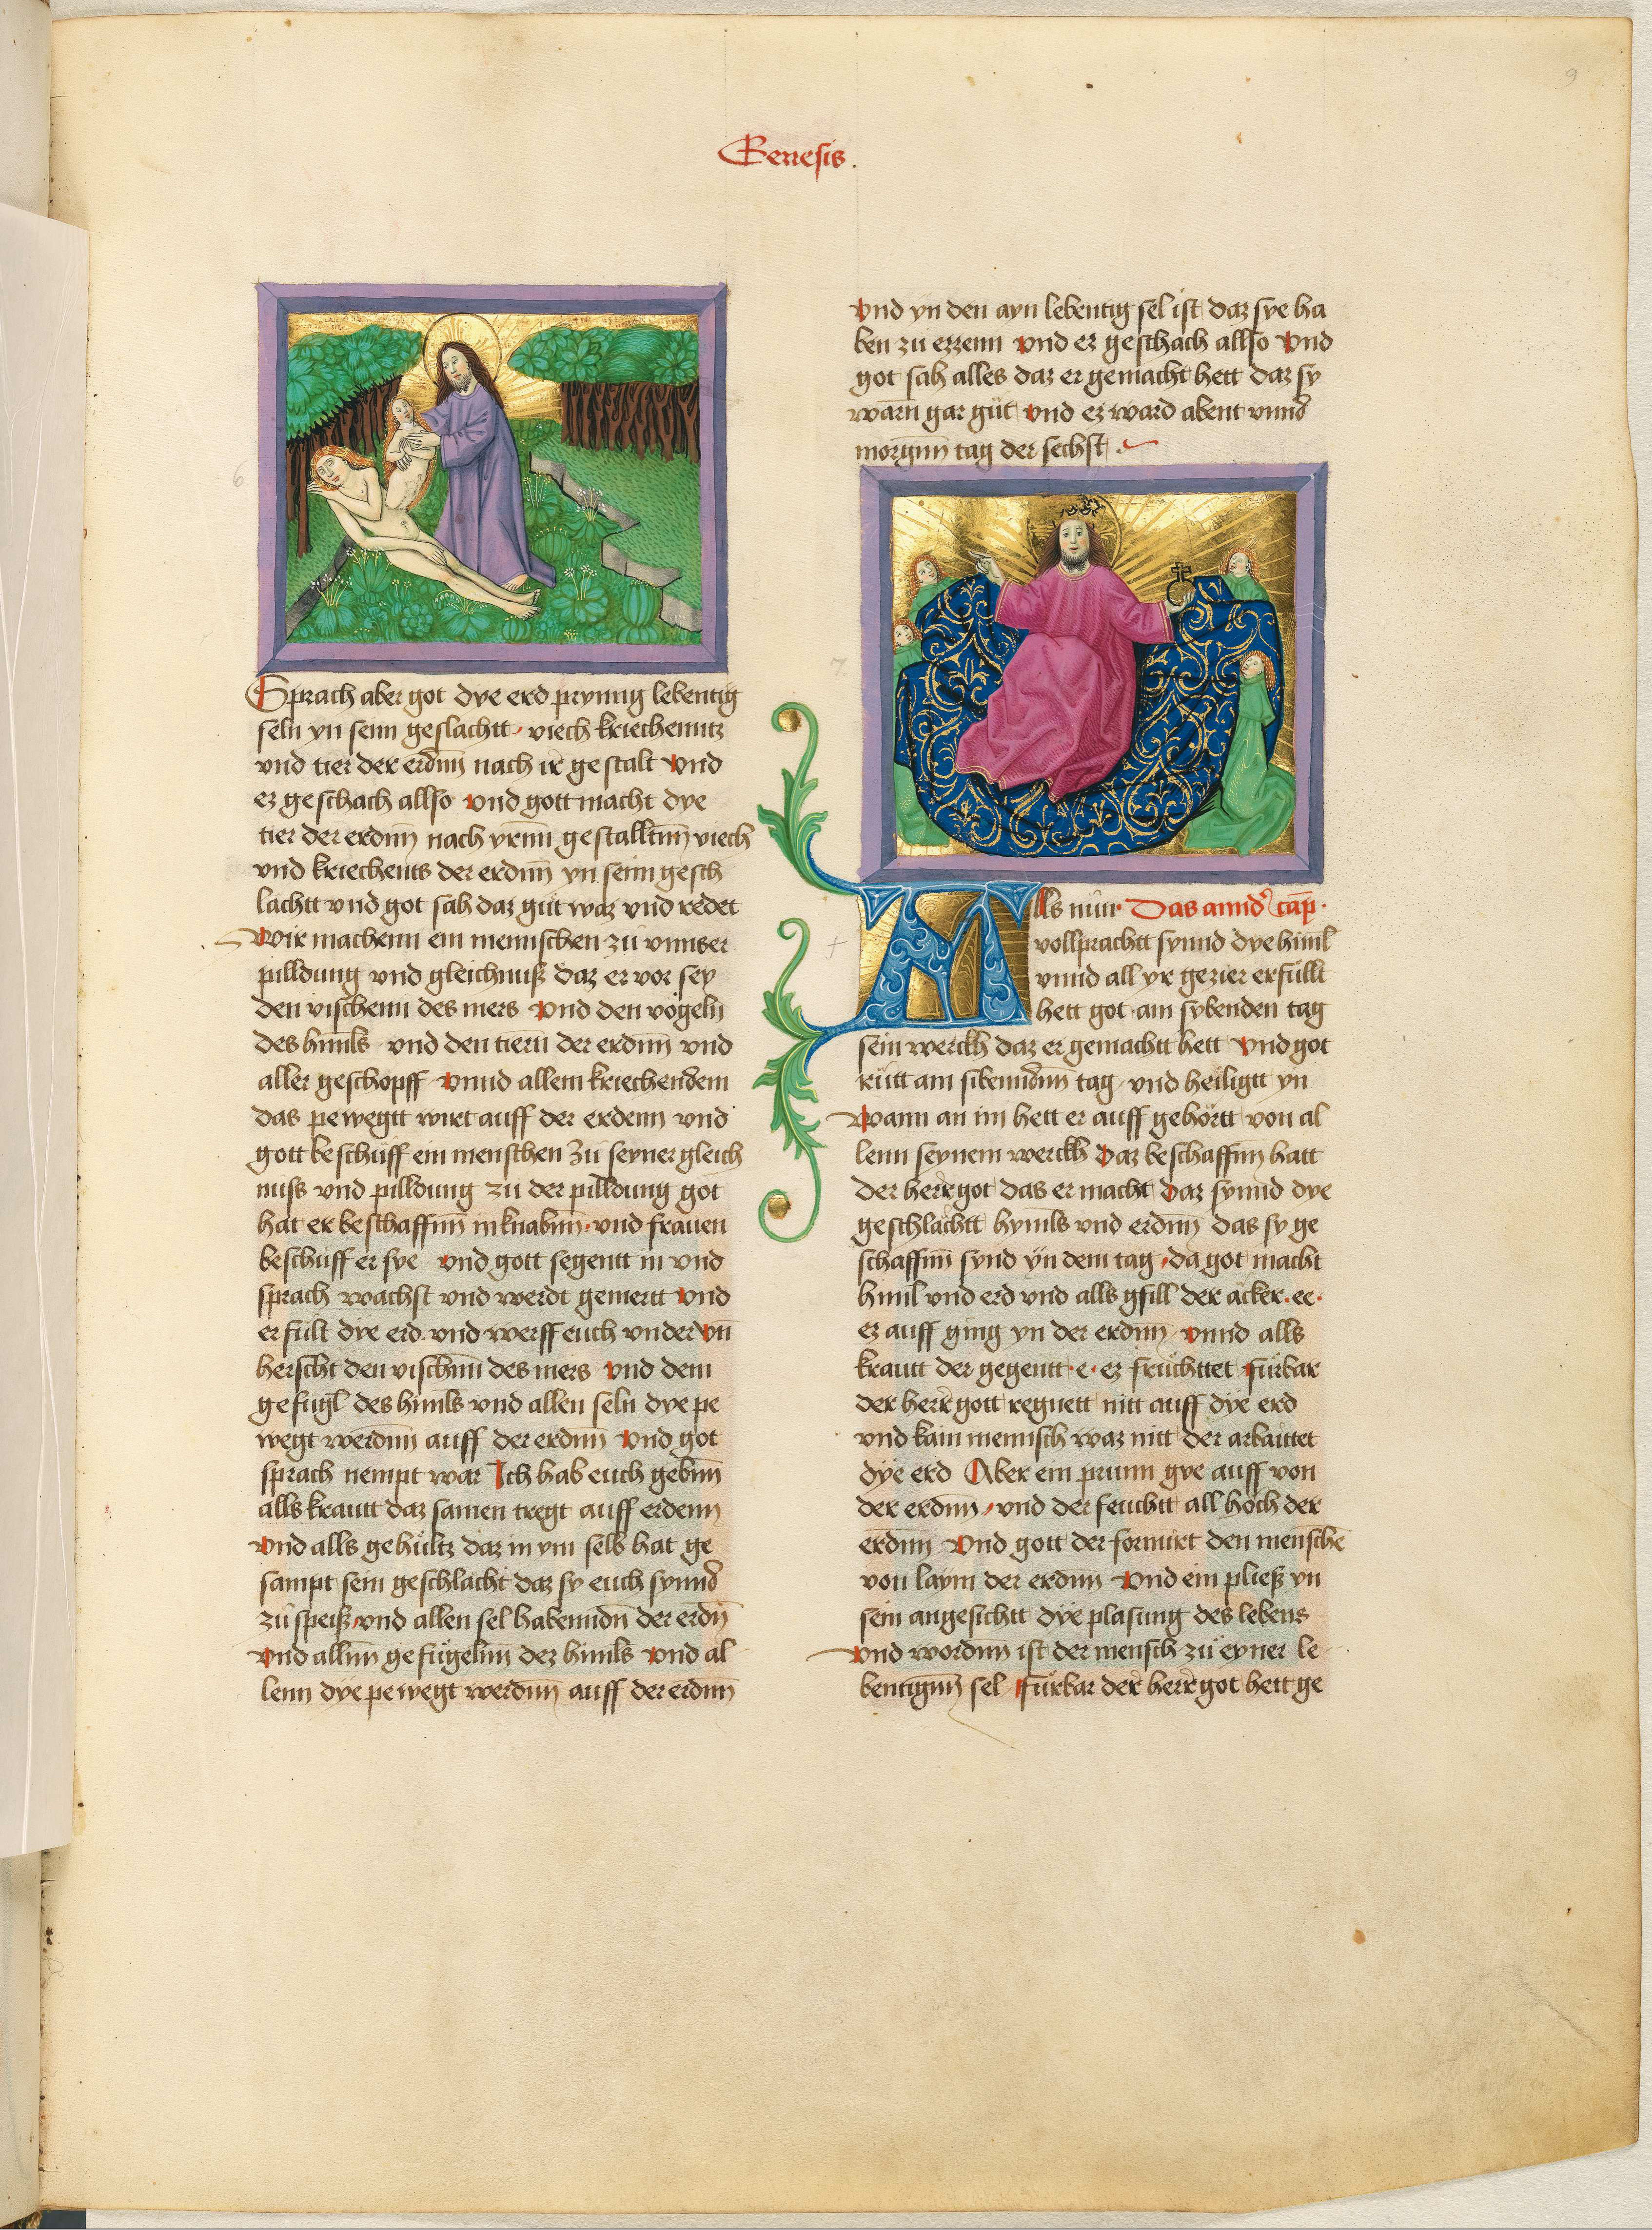 Genesis.
9
Sprach aber got dye erd pryung lebentig
seln yn seim geslachtt viech kriechenntz
vnd tier der erdnn̄ nach ir gestalt Vnd
ez geschach allso vnd gott macht dye
tier der erdnn̄ nach yrnn̄ gestalltnn̄ viech
vnd kriechents der erdnn̄ yn seim gesch
lachtt vnd got sah daz gut waz vnd redet
Wir machenn ein mennschen zu vnnser
pilldung vnd gleichnuß daz er vor sey
den vischenn des mers Vnd den vogeln
des himls vnd den tiern der erdnn̄ vnd
aller geschopff Vnnd allem kriechendem
das pewegtt wirt auff der erdenn vnd
gott beschuff ein menschen zu seyner gleich
nuss vnd pilldung zu der pilldung got
hat er beschaffnn̄ in knabnn̄ vnd frauen
beschuff er sye vnd gott segentt in vnd
sprach wachst vnd werdt gemertt Vnd
erfult dye erd vnd werff euch vnder Vn̄
herscht den vischnn̄ des mers Vnd dem
gefugl des himls vnd allen seln dye pe
wegt werdnn̄ auff der erdnn̄ Vnd got
sprach nempt war Ich hab euch gebnn̄
alls krautt daz samen tregt auff erdenn
Vnd alls gehultz daz in ym selb hat ge
sampt sein geschlacht daz sy euch synnd
zu speiß vnd allen sel habenndn̄ der erdn̄
Vnd allnn̄ gefügelnn̄ dez himls Vnd al
lenn dye pewegt werdnn̄ auff der erdnn̄
6
Vnd yn den ayn lebentig sel ist daz sye ha
ben zu ezzenn Vnd ez geschach allso Vnd
got sah alles daz er gemacht hett daz sy
warn gar gut Vnd ez ward abent vnnd
morgnn̄ tag der sechst
7
Alls nun Das annd' cap̄
vollprachtt synnd dye himl
vnnd all yr gezier erfüllt
hett got am sybenden tag
sein werckh daz er gemachtt hett Vnd got
rutt am sibenndnn̄ tag vnd heiligtt yn
Wann an im hett er auff gehörtt von al
lenn seynem werckh Daz beschaffnn̄ hatt
der herre got das er macht Daz synnd dye
geschlächtt hymls vnd erdnn̄ das sy ge
schaffnn̄ synd yn dem tag da got macht
himl vnd erd vnd alls gfill der äcker. ee.
ez auff ging yn der erdnn̄ Vnnd alls
krautt der gegentt e ez früchttet Fürbar
der herre gott regnett nitt auff dye erd
vnd kain mennsch waz nitt der arbaittet
dye erd Aber ein prunn gye auff von
der erdnn̄ vnd der feuchtt all hoch der
erdnn̄ Vnd gott der formirt den mensche
von laym der erdnn̄ Vnd ein pließ yn
sein angesichtt dye plasung des lebens
Vnd wordnn̄ ist der mensch zu eyner le
bentignn̄ sel Fürbar der herre got hett ge